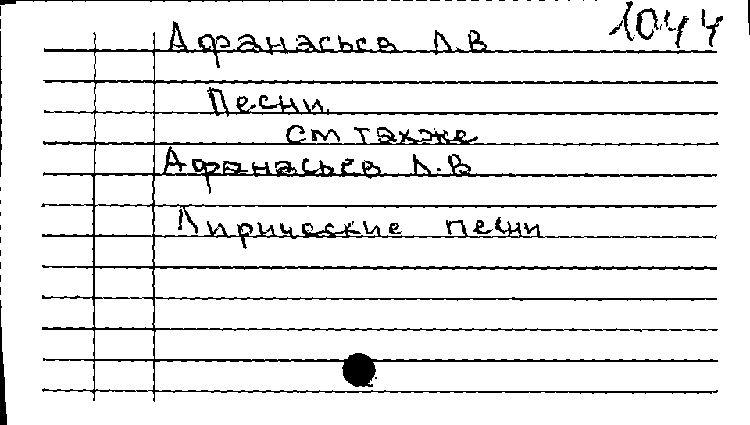 1044
Афанасьев Л.В
Песни.
см также
Афанасьев Л.В
Лирические песни